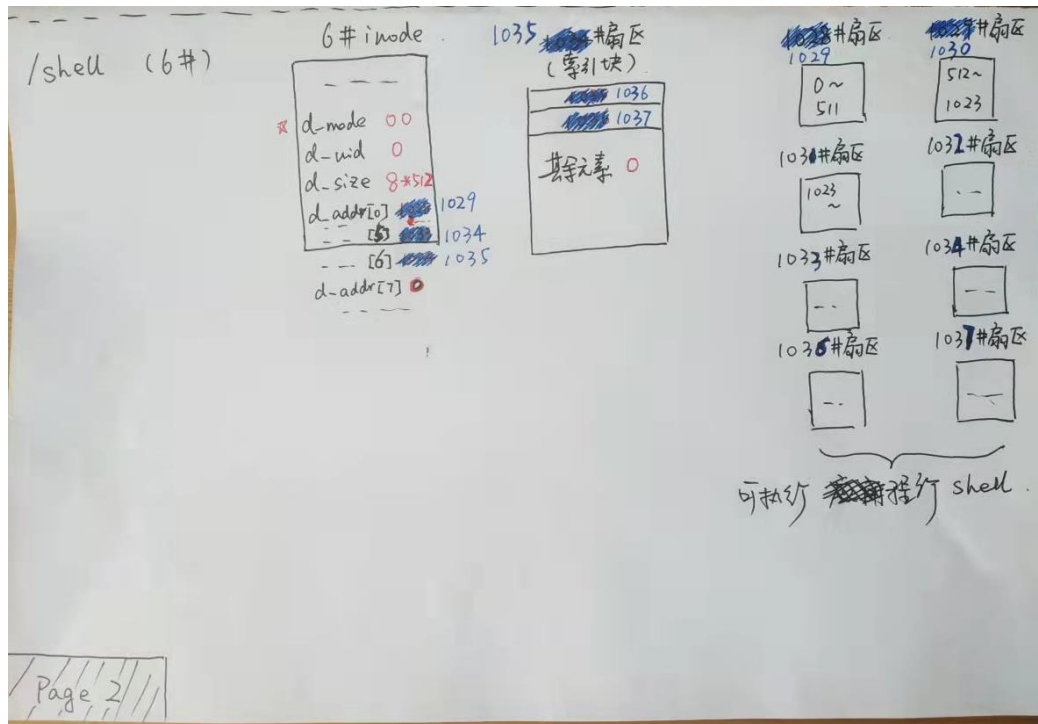 /shell (6#)
6# inode
- - -
☆ d_mode 00
d_uid 0
d_size 8*512
d_addr[0] 1029
-- [5] 1034
--- [6] 1035
d-addr[7] 0
- - - -
1035 #扇区
(索引块)
1036
1037
其余元素 0
#扇区
1029
0~
511
#扇区
1030
512~
1023
1031#扇区
1023
~
1032#扇区
--
1033#扇区
--
1034#扇区
--
1036#扇区
--
1037#扇区
--
可执行 程序 shell.
Page 2